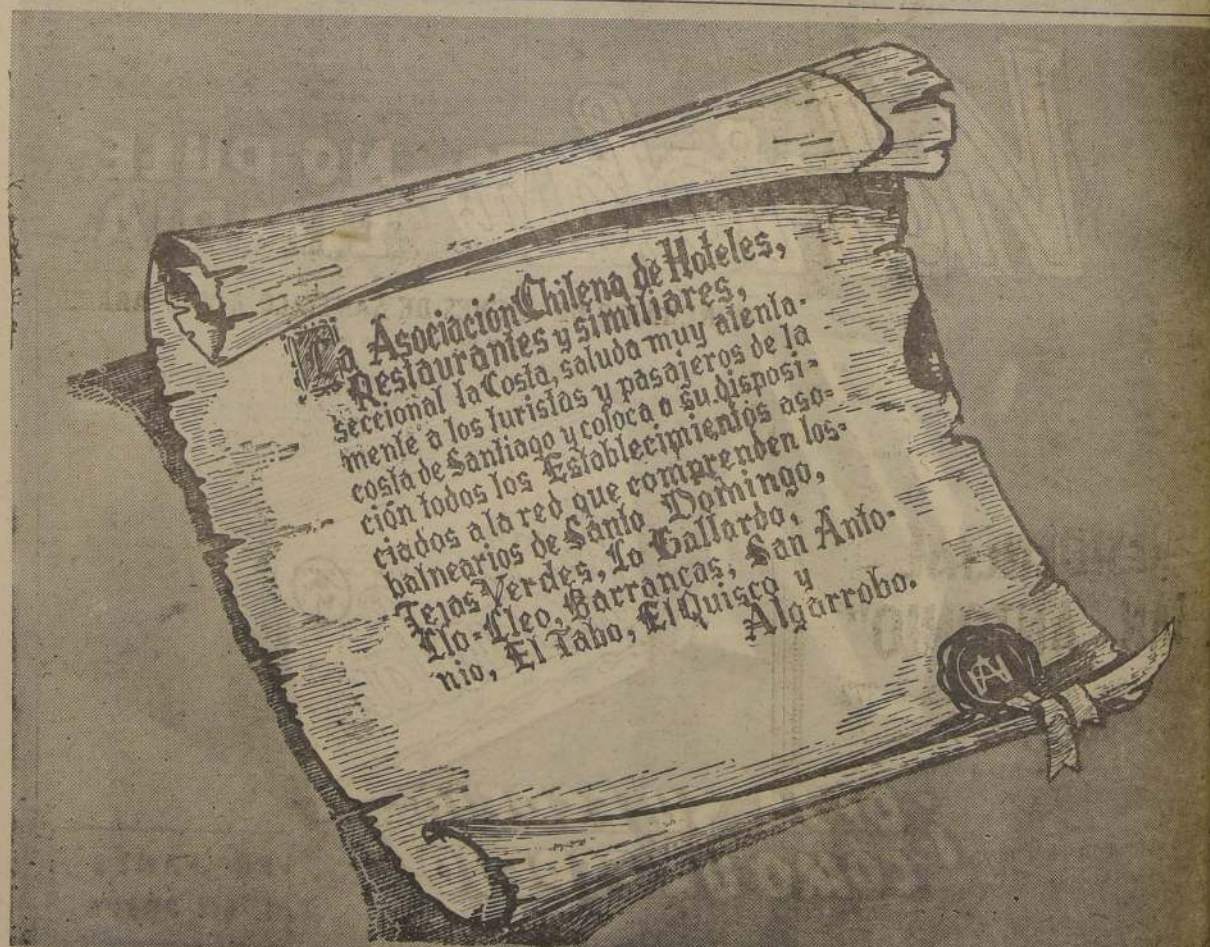 La Asociación Chilena de Hoteles,
Restaurantes y similiares,
seccional la Costa, saluda muy atenta-
mente a los turistas y pasajeros de la
costa de Santiago y coloca a su disposi-
ción todos los Establecimientos aso-
ciados a la red que comprenden los-
balnearios de Santo Domingo,
Tejas Verdes, Lo Gallardo,
Llo-Lleo, Barrancas, San Anto-
nio, El Tabo, El Quisco y
Algarrobo.